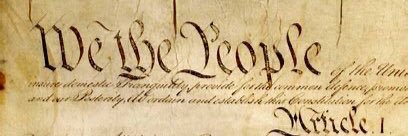 We the People of the Unit
insure domestic Tranquility, provide for the common defence, promote
and our Posterity, do ordain and establish this Constitution for the Un
Article I.